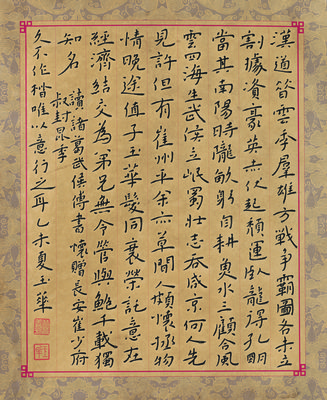 漢道昔雲季羣雄方戰爭霸圖各未立
割據資豪英赤伏起頹運臥龍得孔明
當其南陽時隴畝躬自耕魚水三顧合風
雲四海生武侯立岷蜀壯志吞咸京何人先
見許但有崔州平余亦草間人頗懷拯物
情晚途值子玉華髮同衰榮託意在
經濟結交為弟兄無令管與鮑千載獨
知名
讀諸葛武侯傳書懷贈長安崔少府
叔封昆季
久不作楷唯以意行之耳乙未夏玉華